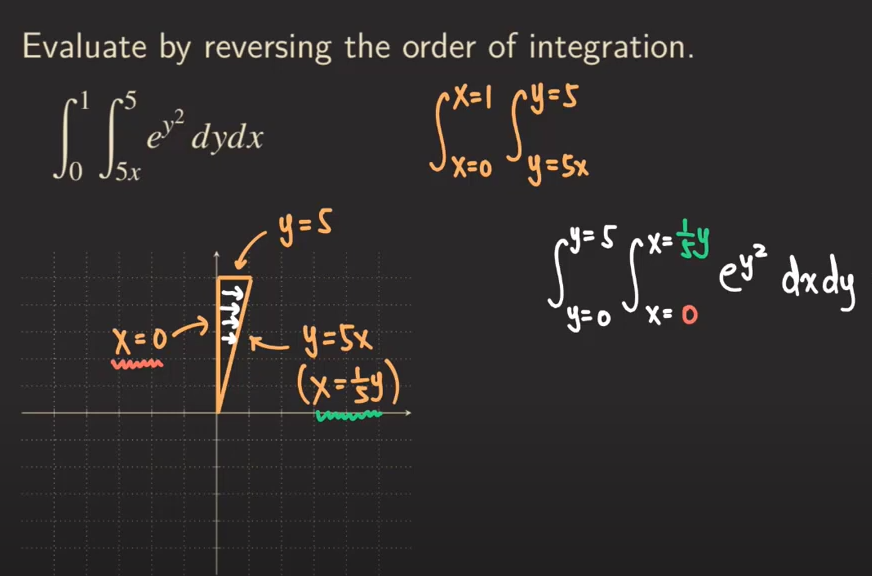 Evaluate by reversing the order of integration.
∫₀¹ ∫₅ₓ⁵ e^{y²} dydx
∫_{x=0}^{x=1} ∫_{y=5x}^{y=5}
y=5
∫_{y=0}^{y=5} ∫_{x=0}^{x=⅕y} e^{y²} dxdy
x=0
y=5x
(x=⅕y)